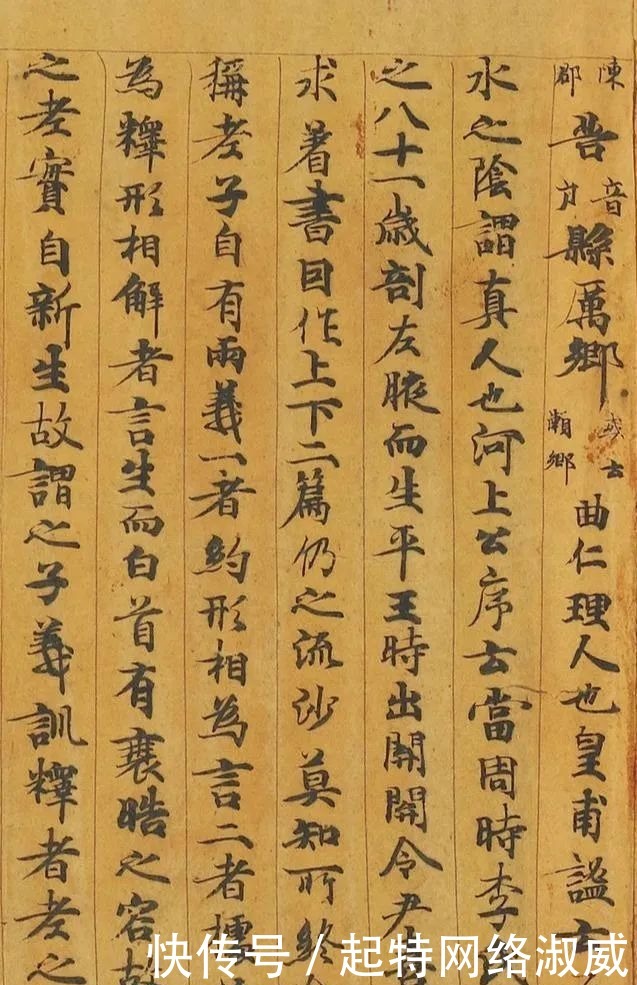 陳郡苦音户縣厲鄉或云瀨鄉曲仁理人也皇甫謐云
水之陰謂真人也河上公序云當周時李氏
之八十一歲剖左腋而生平王時出開開令尹
求著書因作上下二篇仍之流沙莫知所終
稱老子自有兩義一者約形相為言二者
為釋形相解者言生而白首有衰晧之容故
之老實自新生故謂之子義訓釋者老之
快传号/起特网络淑威